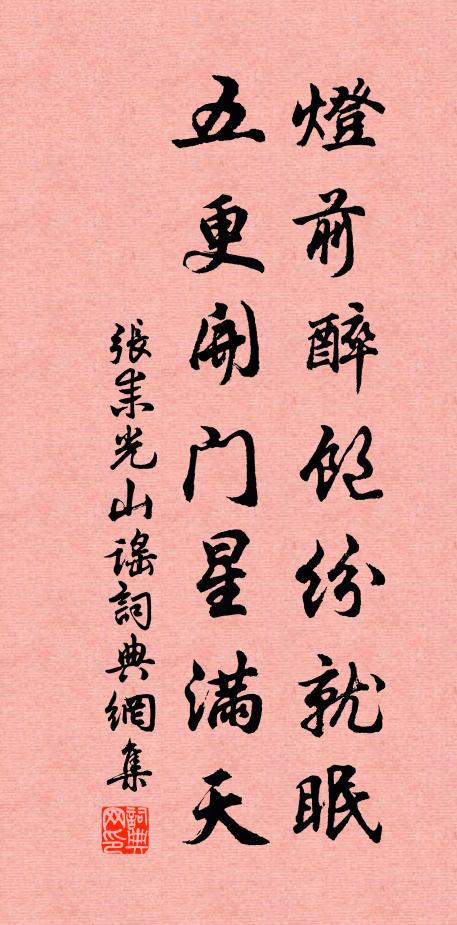 燈前醉飽紛就眠
五更開门星滿天
張耒光山謠詞典網集
詞典网印